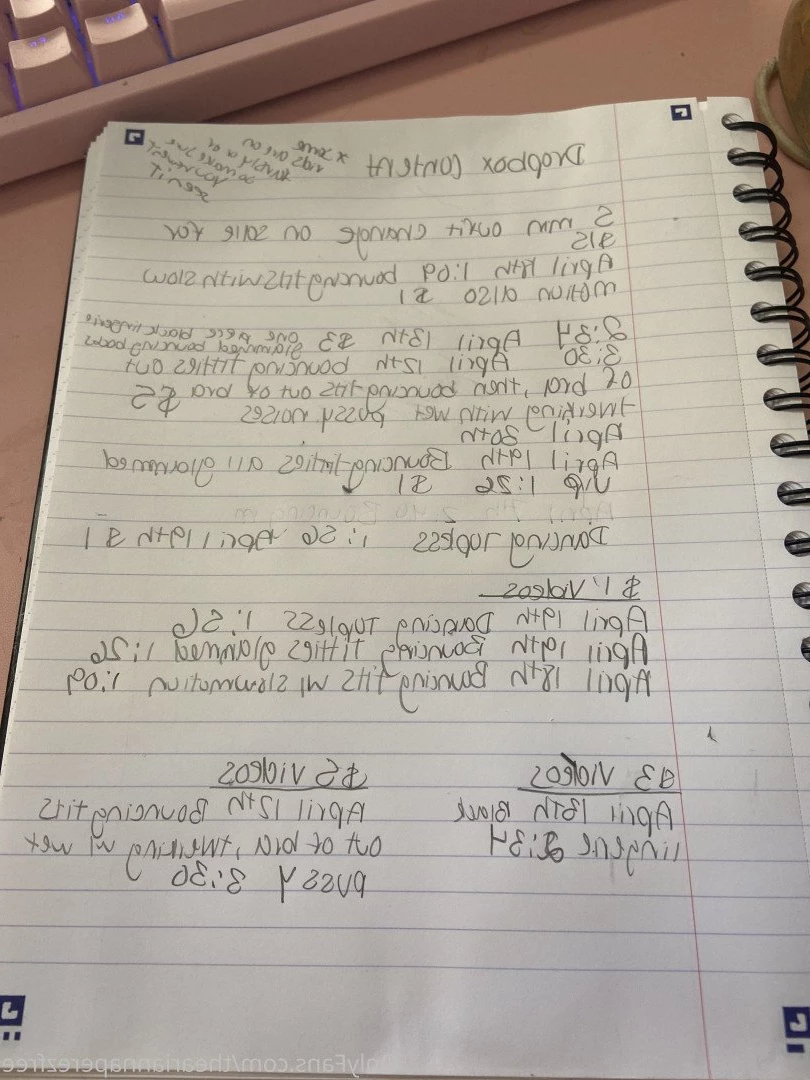 Dropbox Content
x some
vids are on
a
to make sure
you haven't
seen it
5 min outfit change on sale for
$15
April 18th 1:09 bouncing tits with slow
motion also $1
2:34 April 13th $3 one piece black lingerie
glammed bouncing boobs
3:30 April 12th bouncing titties out
of bra, then bouncing tits out of bra $5
twerking with wet pussy noises
April 30th
April 19th Bouncing titties all glammed
up 1:26 $1
Dancing Topless 1:56 April 19th $1
$1 Videos
April 19th Dancing Topless 1:56
April 19th Bouncing Titties glammed 1:26
April 18th Bouncing tits w/ slowmotion 1:09
$3 Videos
April 13th Black
lingerie 2:34
$5 videos
April 12th Bouncing tits
out of bra, twerking w/ wet
pussy 3:30
OnlyFans.com/theariannaperezfree